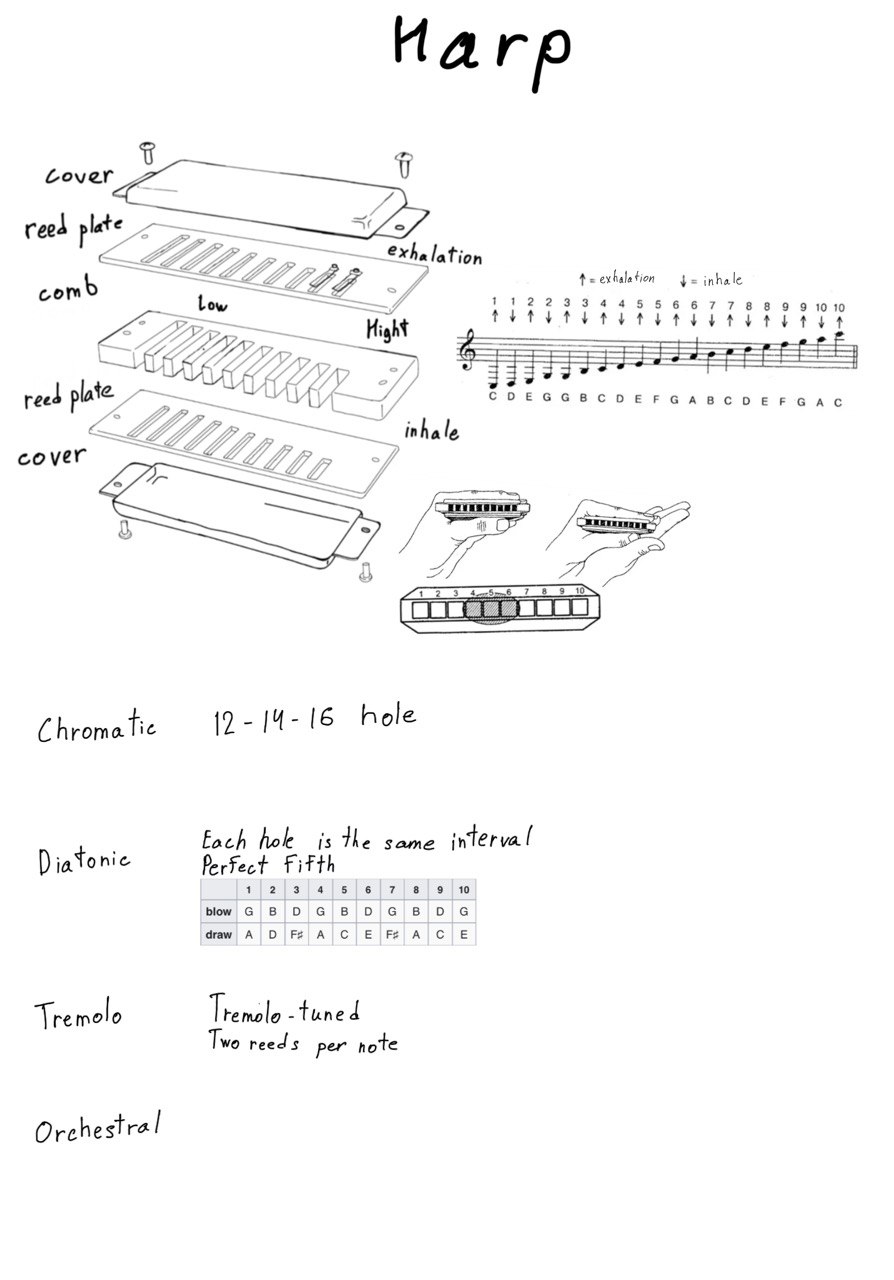 Harp
cover
reed plate
exhalation
comb
low
Hight
reed plate
inhale
cover
↑ = exhalation ↓ = inhale
1 1 2 2 3 3 4 4 5 5 6 6 7 7 8 8 9 9 10 10
↑ ↓ ↑ ↓ ↑ ↓ ↑ ↓ ↑ ↓ ↑ ↓ ↓ ↑ ↓ ↑ ↓ ↑ ↓ ↑
C D E G G B C D E F G A B C D E F G A C
1 2 3 4 5 6 7 8 9 10
Chromatic 12-14-16 hole
Diatonic
Each hole is the same interval
Perfect Fifth
1 2 3 4 5 6 7 8 9 10
blow G B D G B D G B D G
draw A D F♯ A C E F♯ A C E
Tremolo
Tremolo-tuned
Two reeds per note
Orchestral